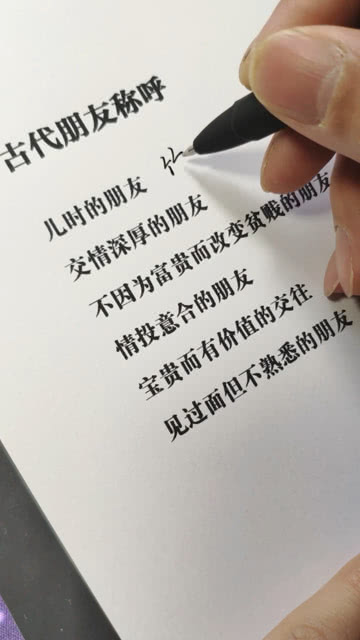 古代朋友称呼
儿时的朋友
交情深厚的朋友
不因为富贵而改变贫贱的朋友
情投意合的朋友
宝贵而有价值的交往
见过面但不熟悉的朋友